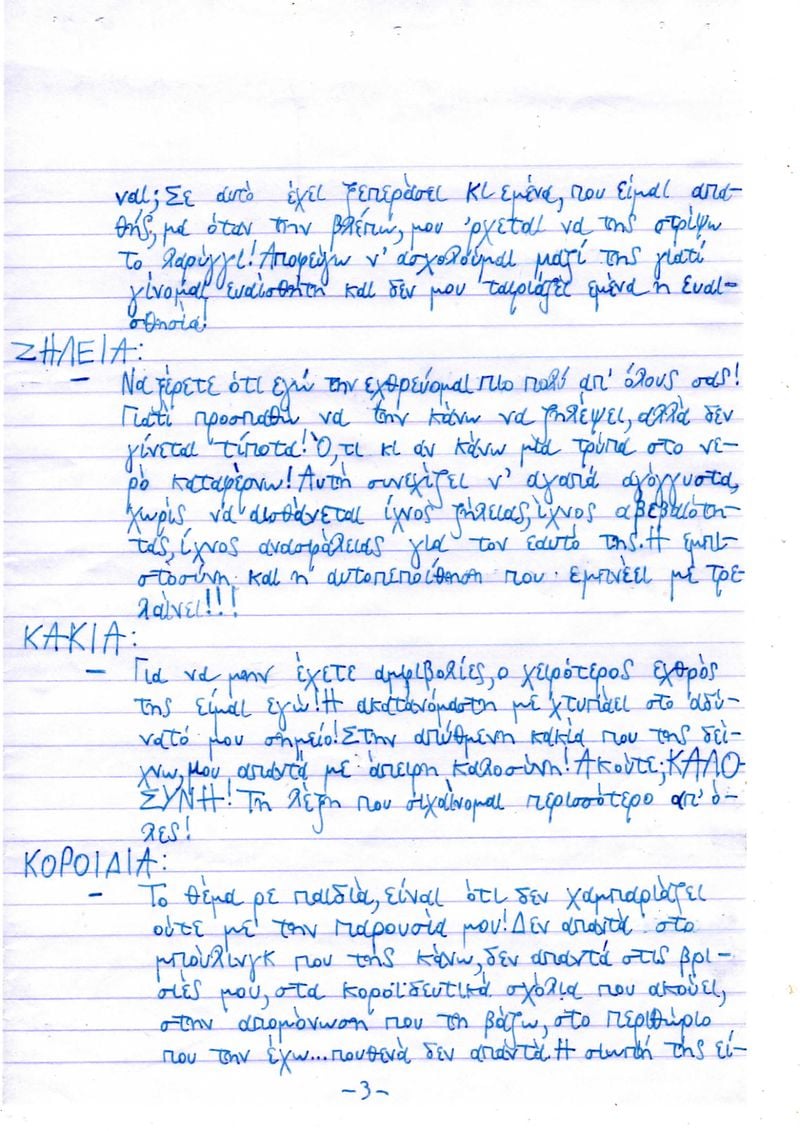 ναι; Σε αυτό έχει ξεπεράσει κι εμένα, που είμαι απα-
θής, μα όταν την βλέπω, μου 'ρχεται να της στρίψω
το λαρύγγι! Αποφεύγω ν' ασχολούμαι μαζί της γιατί
γίνομαι ευαίσθητη και δεν μου ταιριάζει εμένα η ευαι-
σθησία!
ΖΗΛΕΙΑ:
– Να ξέρετε ότι εγώ την εχθρεύομαι πιο πολύ απ' όλους σας!
Γιατί προσπαθώ να την κάνω να ζηλέψει, αλλά δεν
γίνεται τίποτα! Ό,τι κι αν κάνω μια τρύπα στο νε-
ρό καταφέρνω! Αυτή συνεχίζει ν' αγαπά αγόγγυστα,
χωρίς να αισθάνεται ίχνος ζήλειας, ίχνος αβεβαιότη-
τας, ίχνος ανασφάλειας για τον εαυτό της. Η εμπι-
στοσύνη και η αυτοπεποίθηση που εμπνέει με τρε-
λαίνει!!!
ΚΑΚΙΑ:
– Για να μην έχετε αμφιβολίες, ο χειρότερος εχθρός
της είμαι εγώ! Η ακατανόμαστη με χτυπάει στο αδύ-
νατό μου σημείο! Στην απύθμενη κακία που της δεί-
χνω, μου απαντά με άπειρη καλοσύνη! Ακούτε, ΚΑΛΟ-
ΣΥΝΗ! Τη λέξη που σιχαίνομαι περισσότερο απ' ό-
λες!
ΚΟΡΟΙΔΙΑ:
– Το θέμα ρε παιδιά, είναι ότι δεν χαμπαριάζει
ούτε με την παρουσία μου! Δεν απαντά στο
μπούλινγκ που της κάνω, δεν απαντά στις βρι-
σιές μου, στα κοροϊδευτικά σχόλια που ακούει,
στην απομόνωση που τη βάζω, στο περιθώριο
που την έχω... πουθενά δεν απαντά. Η σιωπή της εί-
-3-